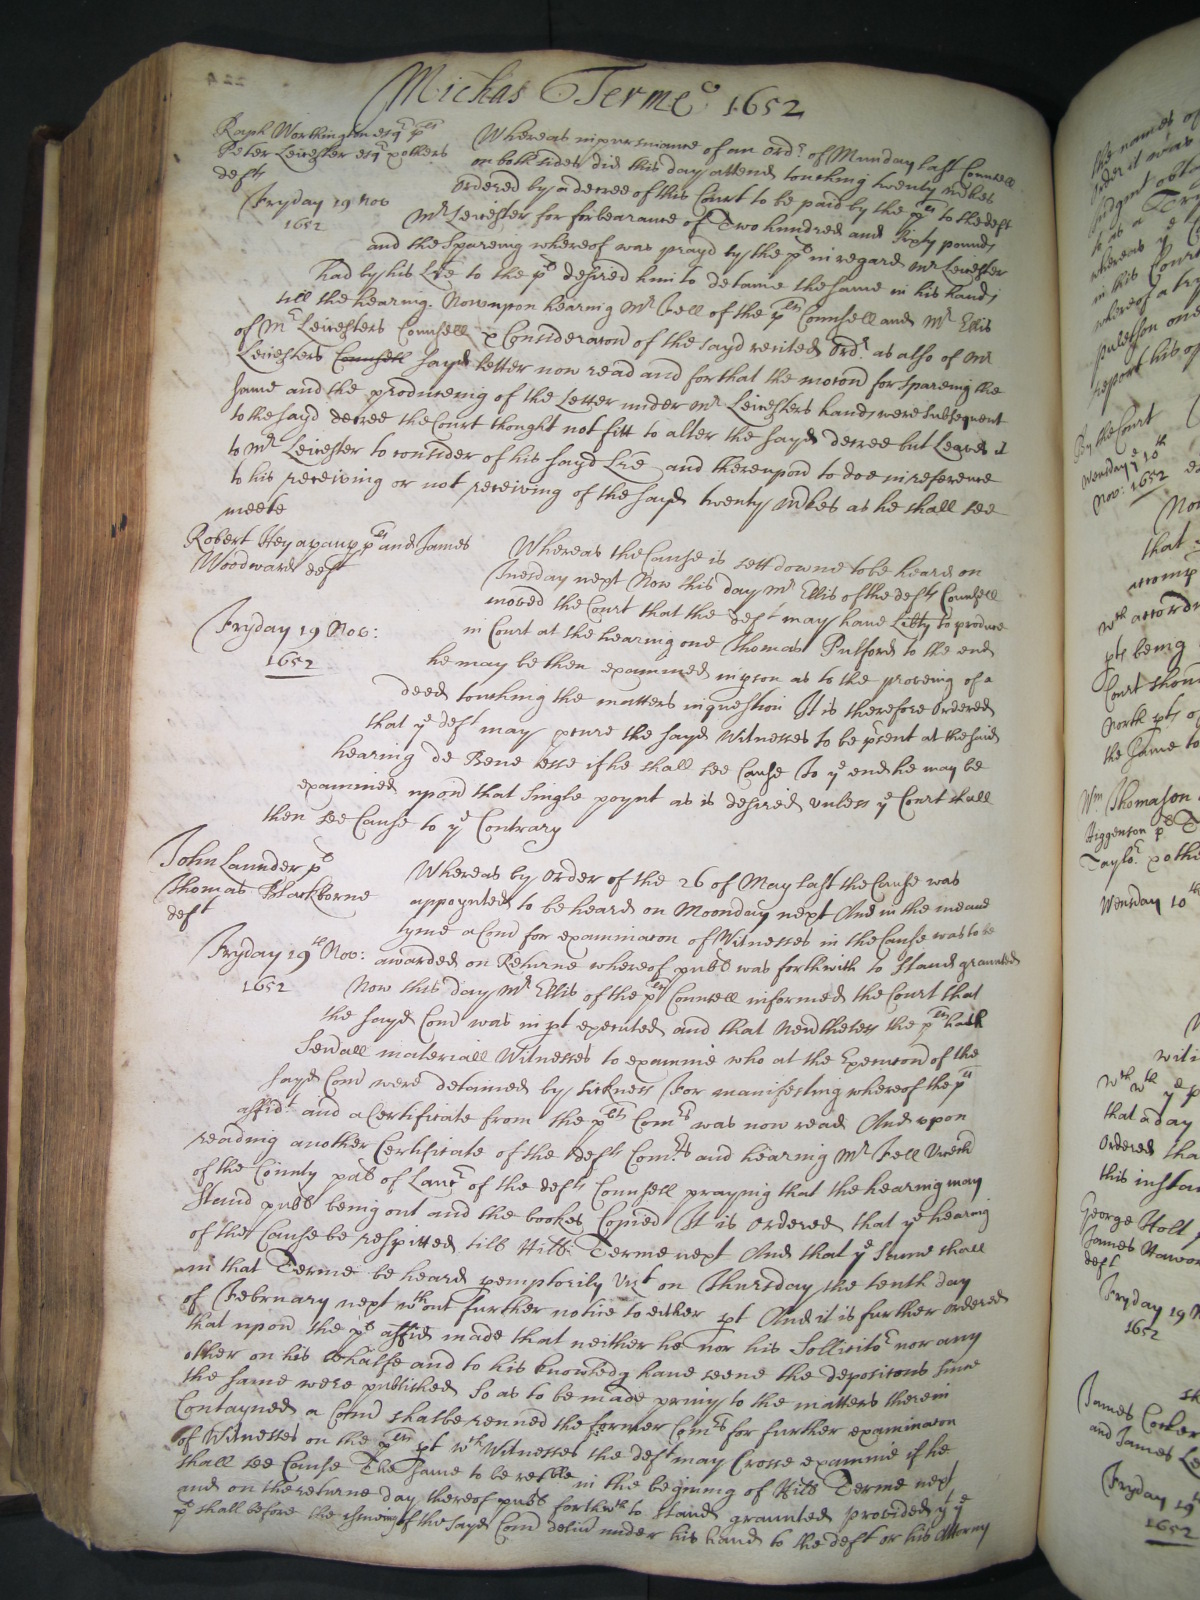 Michas Terme 1652
Raph Worthington esqr plt
Peter Leicester esqr & others
defts
Fryday 19 Nov
1652
Whereas in pursuance of an Ordr of Munday last Councell
on both sides did this day attend touching twenty nobles
Ordered by a decree of this Court to be paid by the plt to the deft
Mr Leicester for forbearance of Two hundred and Sixty pounds
and the Spareing whereof was prayd by the plt in regard Mr Leicester
had by his Lre to the plt desired him to detaine the same in his hands
till the hearing. Now upon hearing Mr Fell of the plts Counsell and Mr Ellis
of Mr Leicesters Counsell & Consideracon of the sayd recited Ordr as also of Mr
Leicesters Counsell sayd letter now read and for that the mocon for spareing the
same and the produceing of the Letter under Mr Leicesters hand were Subsequent
to the sayd decree the Court thought not fitt to alter the sayd decree but Leaves it
to Mr Leicester to consider of his sayd Lre and thereupon to doe in reference
to his receiving or not receiving of the sayd twenty nobles as he shall see
meete
Robert plt and James
Woodward deft
Fryday 19 Nov:
1652
Whereas the Cause is sett downe to be heard on
Tuesday next Now this day Mr Ellis of the defts Counsell
moved the Court that the deft may have Libty to produce
in Court at the hearing one Thomas Pulford to the end
he may be then examined in pson as to the proveing of a
deed touching the matters in question It is therefore Ordered
that ye deft may pcure the sayd Witnesses to be psent at the said
hearing de Bene esse if he shall see Cause To ye end he may be
examined upon that Single poynt as is desired unless ye Court shall
then see Cause to ye Contrary
John Launder plt
Thomas Blackborne
deft
Fryday 19th Nov:
1652
Whereas by Order of the 26 of May last the Cause was
appoynted to be heard on Moonday next And in the meane
tyme a Comd for examinacon of Witnesses in the Cause was to be
awarded on Returne whereof publ was forthwith to stand graunted
Now this day Mr Ellis of the plts Councell informed the Court that
the sayd Comd was in pt executed and that Nevtheless the plt hath
Sevall materiall Witnesses to examine who at the Execucon of the
sayd Comd were detained by sickness For manifesting whereof the plts
affidt and a Certificate from the plts Comrs was now read And upon
reading another Certificate of the defts Comrs and hearing Mr Fell
of the County of Lanc of the defts Counsell praying that the hearing may
stand publ being out and the bookes Copied It is Ordered that ye hearing
of the Cause be respitted till Hill: Terme next And that ye same shall
in that Terme be heard pemptorily Vizt on Thursday the tenth day
of February next wthout further notice to either pt And it is further Ordered
that upon the plts affid made that neither he nor his Sollicitor nor any
other on his behalfe and to his knowledg have seene the deposicons since
the same were published So as to be made privy to the matters therein
Contayned a Comd shalbe renued the former Comrs for further examinacon
of Witnesses on the plts pt wth Witnesses the deft may Crosse examine if he
shall see Cause The Same to be retble in the begining of Hill Terme next
and on the returne day thereof publ forthwth to stand graunted provided yt ye
plt shall before the of the sayd Comd delivr under his hand to the deft or his Attorny
By the Court
Wensday ye 10th
Nov: 1652
Wm Thomason
Higgenson plt
Taylor & othe
Wensday 10th
George Holt
James
deft
Fryday 19
1652
James
and James
Fryday 19
1652